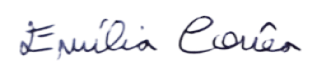 Emília Corrêa